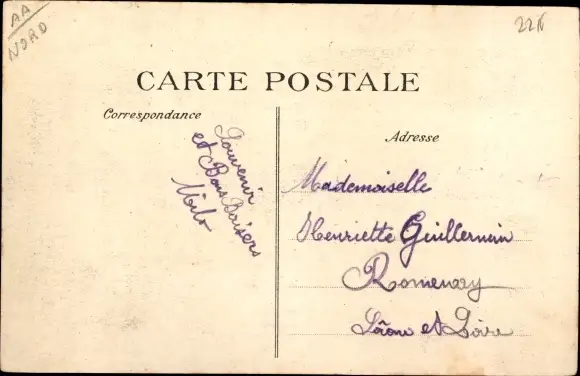 AA
NORD
22
CARTE POSTALE
Correspondance
Souvenir
et Bons Baisers
Milo
Adresse
Mademoiselle
Henriette Guillermin
Romenay
Saône et Loire